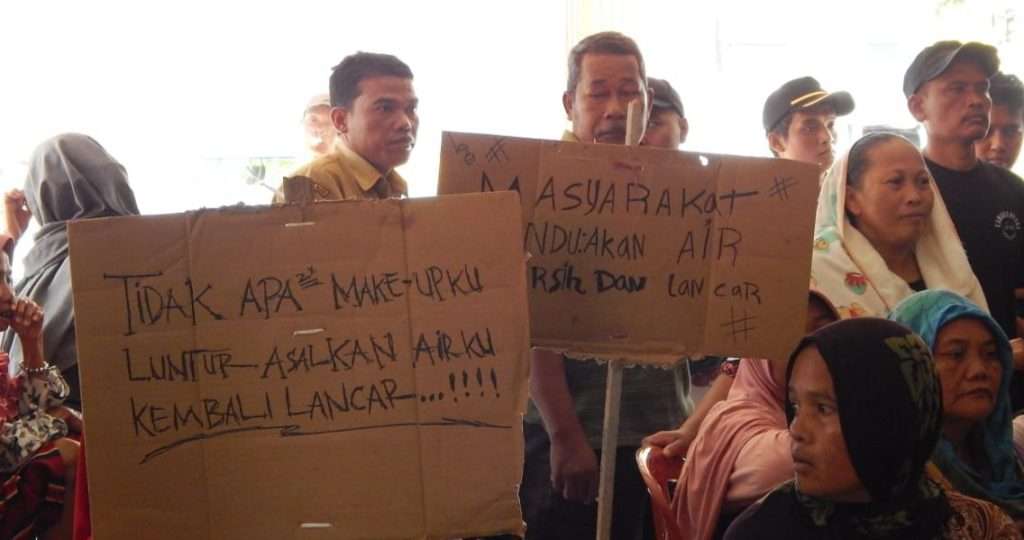 TIDAK APA² MAKE-UPKU
LUNTUR ASALKAN AIRKU
KEMBALI LANCAR...!!!!
MASYARAKAt
NDU:AKAN AIR
RSih DAN LANCAR